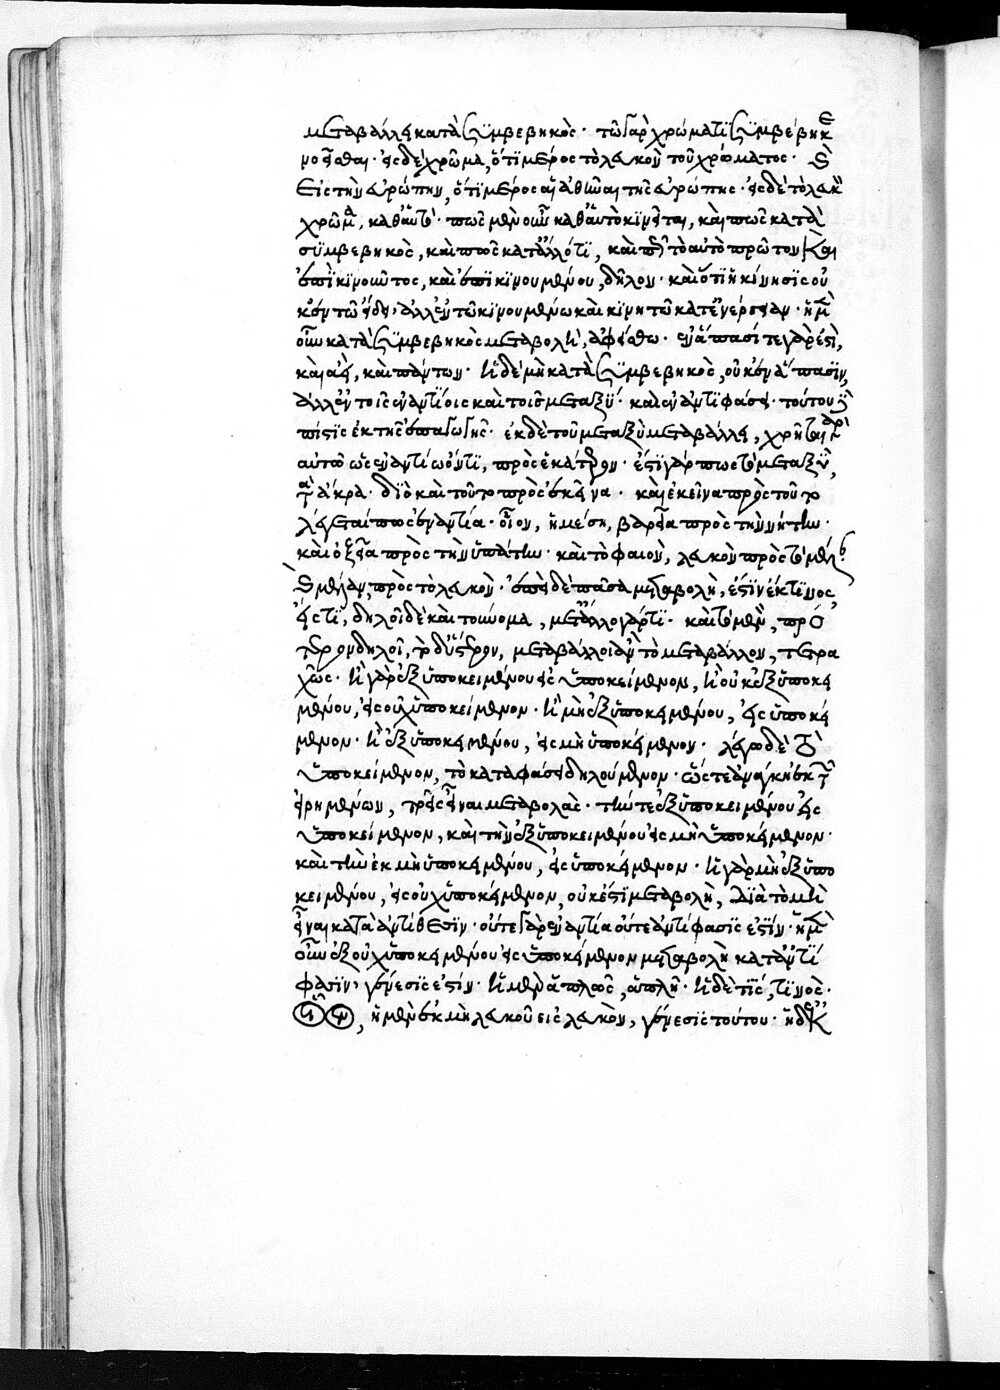 μεταβάλλει κατὰ συμβεβηκός· τῶ γὰρ χρώματι συμβέβηκε
νοεῖσθαι· εἰς δὲ χρῶμα, ὅτι μέρος τὸ λευκὸν τοῦ χρώματος· καὶ
εἰς τὴν εὐρώπην, ὅτι μέρος αἱ ἀθῆναι τῆς εὐρώπης· εἰς δὲ τὸ λευκὸν
χρῶμα, καθ' αὑτό· πῶς μὲν οὖν καθ' αὑτὸ κινεῖται, καὶ πῶς κατὰ
συμβεβηκὸς, καὶ πῶς κατ' ἄλλό τι, καὶ πῶς τὸ αὐτὸ πρῶτον καὶ
ἐπὶ κινοῦντος, καὶ ἐπὶ κινουμένου, δῆλον· καὶ ὅτι ἡ κίνησις οὐ
κ' ἐν τῶ εἴδει· ἀλλ' ἐν τῶ κινουμένω καὶ κινητῶ κατ' ἐνέργειαν· ἡ μὲν
οὖν κατὰ συμβεβηκὸς μεταβολὴ, ἀφείσθω· ἐν ἅπασί τε γάρ ἐστι,
καὶ ἀεὶ, καὶ πάντων· ἡ δὲ μὴ κατὰ συμβεβηκὸς, οὐκ ἐν ἅπασιν,
ἀλλ' ἐν τοῖς ἐναντίοις καὶ τοῖς μεταξύ· καὶ ἐν ἀντιφάσει· τούτου δὲ
πίστις ἐκ τῆς ἐπαγωγῆς· ἐκ δὲ τοῦ μεταξὺ μεταβάλλει, χρῆται γὰρ
αὐτῶ ὡς ἐναντίω ὄντι, πρὸς ἑκάτερον· ἔστι γάρ πως τὸ μεταξὺ,
τὰ ἄκρα· διὸ καὶ τοῦτο πρὸς ἐκεῖνα· κἀκεῖνα πρὸς τοῦτο
λέγεταί πως ἐναντία· οἷον, ἡ μέση, βαρεῖα πρὸς τὴν νήτην·
καὶ ὀξεῖα πρὸς τὴν ὑπάτην· καὶ τὸ φαιὸν, λευκὸν πρὸς τὸ μέλαν·
καὶ μέλαν, πρὸς τὸ λευκόν· ἐπεὶ δὲ πᾶσα μεταβολή, ἐστιν ἔκ τινος
εἴς τι, δηλοῖ δὲ καὶ τοὔνομα, μετ' ἄλλο γάρ τι· καὶ τὸ μὲν, πρό
τερον δηλοῖ, τὸ δ' ὕστερον, μεταβάλλοι ἂν τὸ μεταβάλλον, τετρα
χῶς· ἢ γὰρ ἐξ ὑποκειμένου εἰς ὑποκείμενον, ἢ οὐκ ἐξ ὑποκει
μένου, εἰς οὐχ ὑποκείμενον· ἢ μὴ ἐξ ὑποκειμένου, εἰς ὑποκεί
μενον· ἢ ἐξ ὑποκειμένου, εἰς μὴ ὑποκείμενον· λέγω δὲ τὸ
ὑποκείμενον, τὸ καταφάσει δηλούμενον· ὥστε ἀνάγκη ἐκ τῶν
εἰρημένων, τρεῖς εἶναι μεταβολάς· τήν τε ἐξ ὑποκειμένου εἰς
ὑποκείμενον, καὶ τὴν ἐξ ὑποκειμένου εἰς μὴ ὑποκείμενον·
καὶ τὴν ἐκ μὴ ὑποκειμένου, εἰς ὑποκείμενον· ἡ γὰρ μὴ ἐξ ὑπο
κειμένου, εἰς οὐχ ὑποκείμενον, οὐκ ἔστι μεταβολή, διὰ τὸ μὴ
εἶναι κατὰ ἀντίθεσιν· οὔτε γὰρ ἐναντία οὔτε ἀντίφασίς ἐστιν· ἡ μὲν
οὖν ἐξ οὐχ ὑποκειμένου εἰς ὑποκείμενον μεταβολὴ κατ' ἀντί
φασιν, γένεσίς ἐστιν· ἡ μὲν ἁπλῶς, ἁπλῆ· ἡ δὲ τὶς, τινός·
, ἡ μὲν ἐκ μὴ λευκοῦ εἰς λευκὸν, γένεσις τούτου· ἡ δ' ἐκ